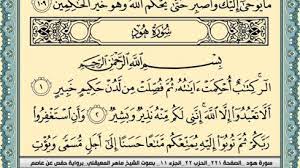 مَا يُوحَىٰ إِلَيْكَ وَاصْبِرْ حَتَّىٰ يَحْكُمَ اللَّهُ وَهُوَ خَيْرُ الْحَاكِمِينَ ١٠٩
سُورَةُ هُودٍ
بِسْمِ اللَّهِ الرَّحْمَٰنِ الرَّحِيمِ
الٓر كِتَابٌ أُحْكِمَتْ آيَاتُهُ ثُمَّ فُصِّلَتْ مِن لَّدُنْ حَكِيمٍ خَبِيرٍ ١
أَلَّا تَعْبُدُوا إِلَّا اللَّهَ إِنَّنِي لَكُم مِّنْهُ نَذِيرٌ وَبَشِيرٌ ٢ وَأَنِ اسْتَغْفِرُوا
رَبَّكُمْ ثُمَّ تُوبُوا إِلَيْهِ يُمَتِّعْكُم مَّتَاعًا حَسَنًا إِلَىٰ أَجَلٍ مُّسَمًّى
سورة هود - الصفحة ٢٢١ - الحزب ٢٢ - الجزء ١١ - بصوت الشيخ ماهر المعيقلي - برواية حفص عن عاصم